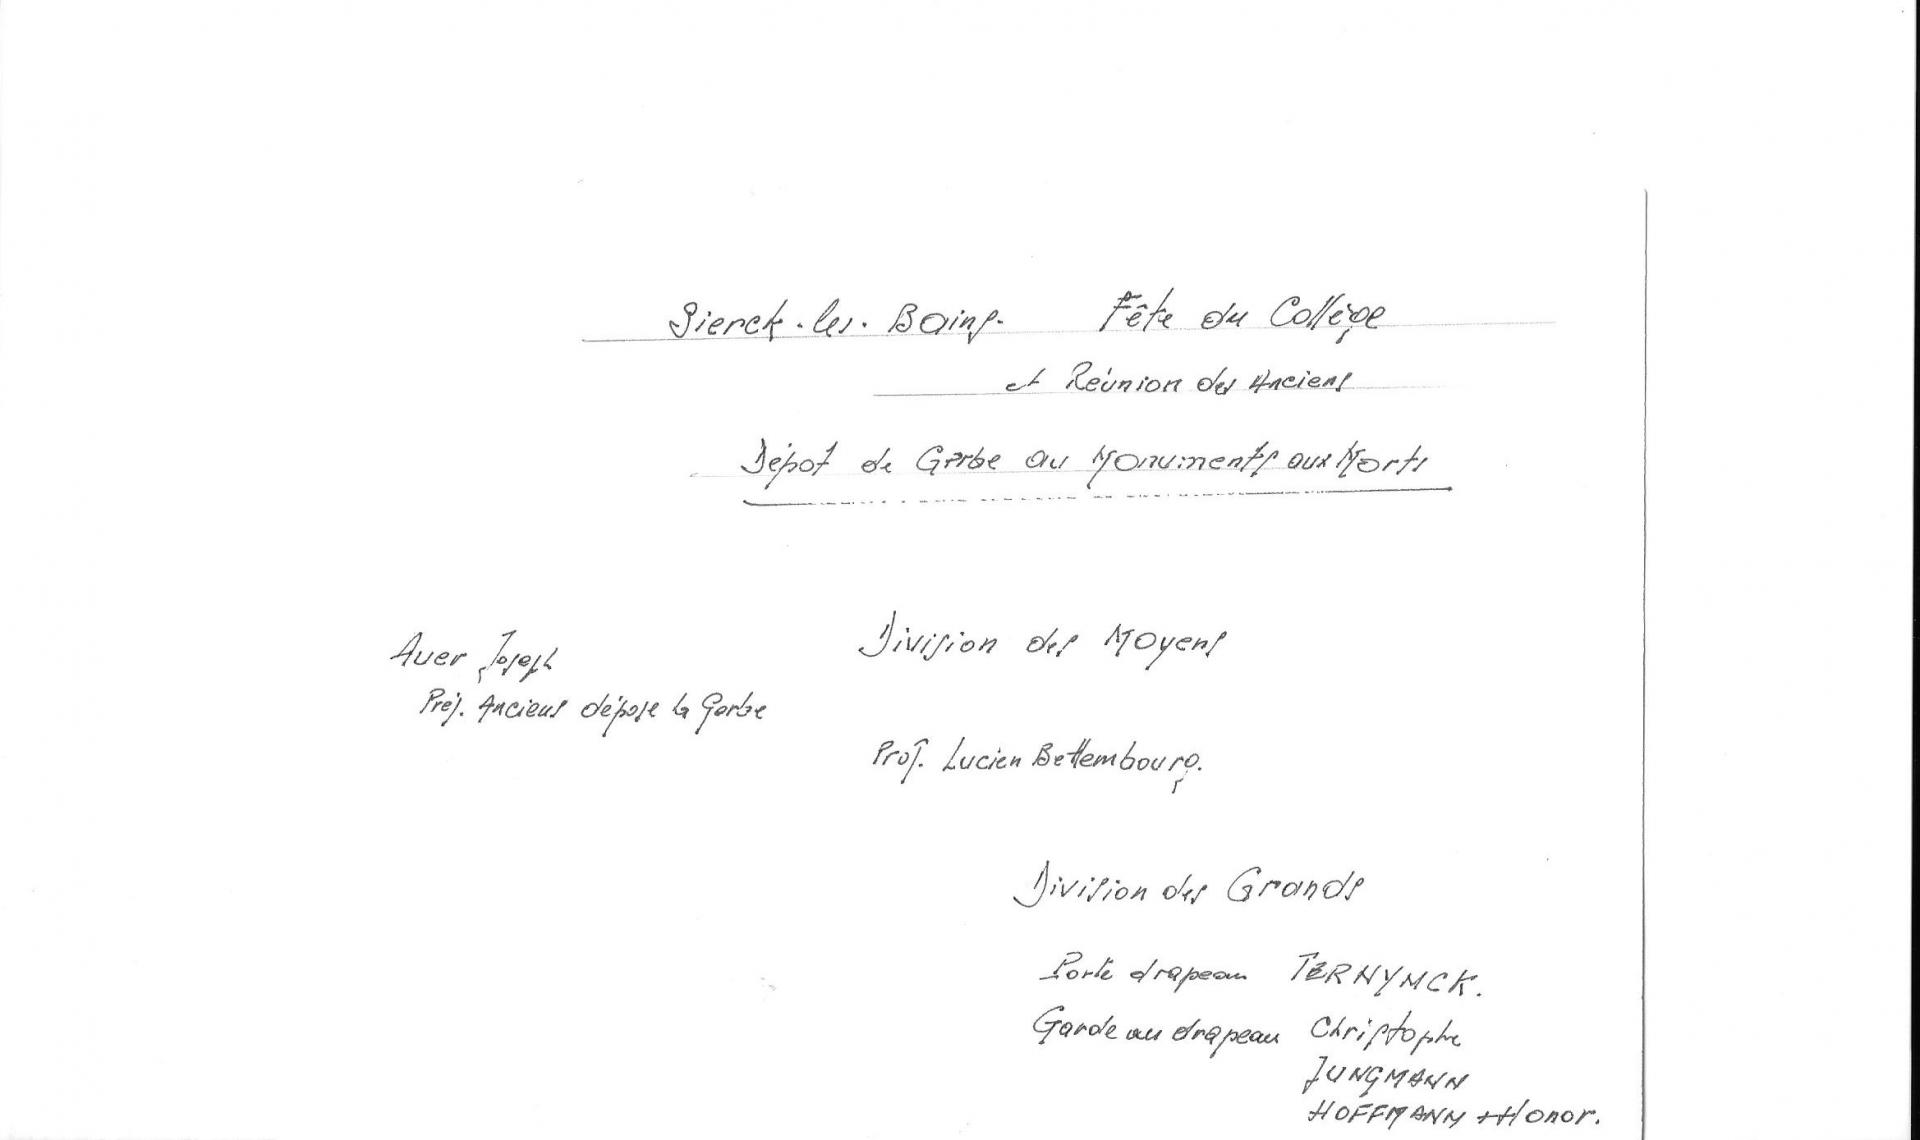 Sierck-les-Bains. Fête du Collège
et Réunion des Anciens
Dépot de Gerbe au Monuments aux Morts
Auer Joseph
Prés. Anciens dépose la Gerbe
Division des Moyens
Prof. Lucien Bettembourg.
Division des Grands
Porte drapeau TERNYMCK.
Garde au drapeau Christophe
JUNGMANN
HOFFMANN + Honor.